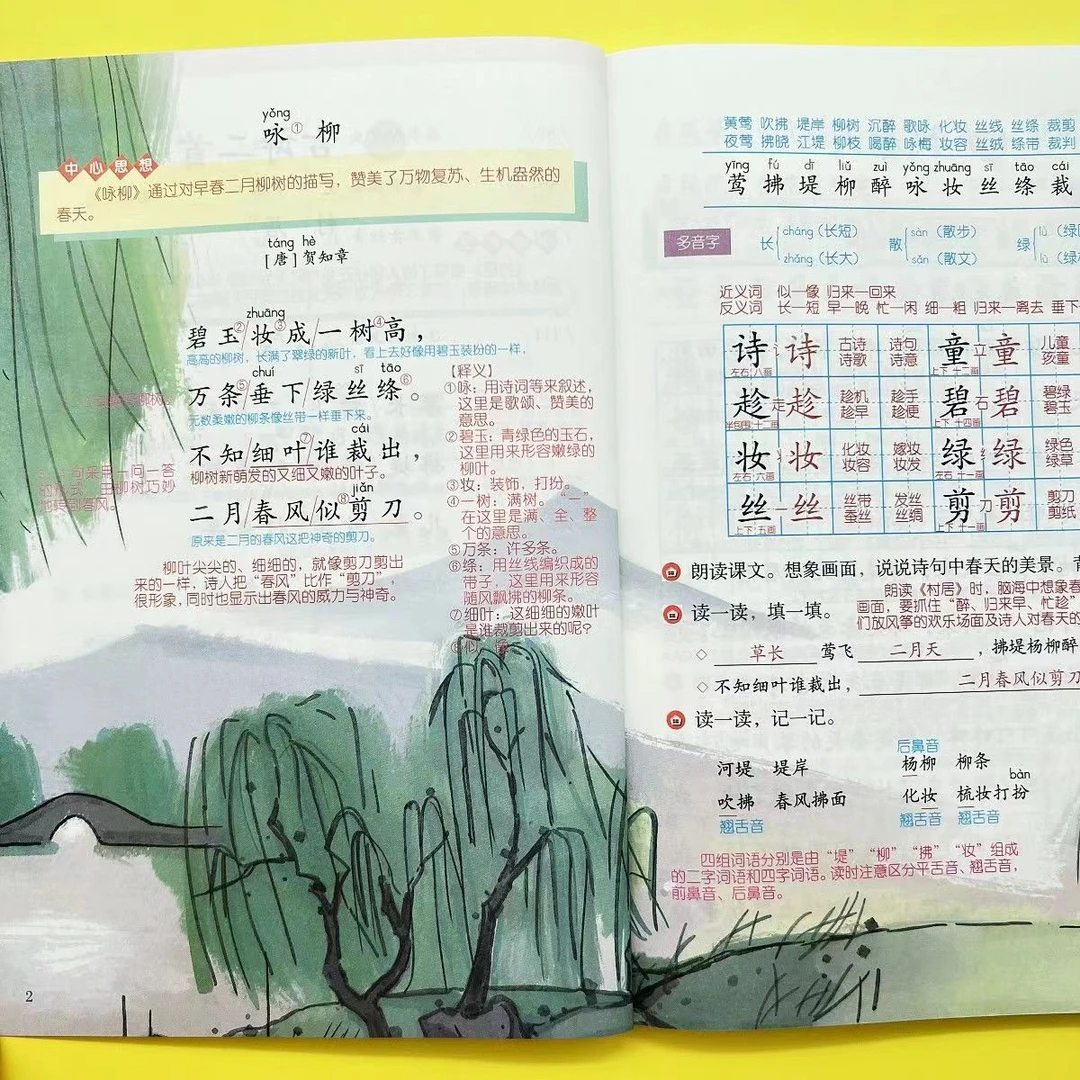 yǒng
咏① 柳
中心思想
《咏柳》通过对早春二月柳树的描写，赞美了万物复苏、生机盎然的
春天。
táng hè
［唐］贺知章
zhuāng
碧玉②/妆③成/一树④高，
高高的柳树，长满了翠绿的新叶，看上去好像用碧玉装扮的一样，
chuí sī tāo
万条⑤/垂下/绿丝绦⑥。
无数柔嫩的柳条像丝带一样垂下来。
cái
不知/细叶⑦/谁裁出，
柳树新萌发的又细又嫩的叶子。
jiǎn
二月/春风/似⑧剪刀。
原来是二月的春风这把神奇的剪刀。
句采用一问一答
柳树巧妙
春风。
柳叶尖尖的、细细的，就像剪刀剪出
来的一样，诗人把“春风”比作“剪刀”，
很形象，同时也显示出春风的威力与神奇。
【释义】
①咏：用诗词等来叙述，
这里是歌颂、赞美的
意思。
②碧玉：青绿色的玉石，
这里用来形容嫩绿的
柳叶。
③妆：装饰，打扮。
④一树：满树。“一”
在这里是满、全、整
个的意思。
⑤万条：许多条。
⑥绦：用丝线编织成的
带子，这里用来形容
随风飘拂的柳条。
⑦细叶：这细细的嫩叶
是谁裁剪出来的呢？
⑧似：像。
2
黄莺 吹拂 堤岸 柳树 沉醉 歌咏 化妆 丝线 丝绦 裁剪
夜莺 拂晓 江堤 柳枝 喝醉 咏梅 妆容 丝绒 绦带 裁判
yīng fú dī liǔ zuì yǒng zhuāng sī tāo cái
莺 拂 堤 柳 醉 咏 妆 丝 绦 裁
多音字
长 cháng（长短） 散 sàn（散步） 绿 lǜ（绿
zhǎng（长大） sǎn（散文） lù（绿
近义词 似—像 归来—回来
反义词 长—短 早—晚 忙—闲 细—粗 归来—离去 垂下
诗 讠 诗 古诗 诗句 童 立 童 儿童
诗歌 诗意 孩童
左右：八画 上下：十二画
趁 走 趁 趁机 趁手 碧 石 碧 碧绿
趁早 趁便 碧玉
半包围：十二画 上下：十四画
妆 妆 化妆 嫁妆 绿 纟 绿 绿色
妆容 妆发 绿草
左右：六画 左右：十一画
丝 一 丝 丝带 发丝 剪 刀 剪 剪刀
蚕丝 丝绸 剪纸
上下：五画 上下：十一画
朗读课文。想象画面，说说诗句中春天的美景。背
朗读《村居》时，脑海中想象春
读一读，填一填。
画面，要抓住“醉、归来早、忙趁”
们放风筝的欢乐场面及诗人对春天的
◇ 草长 莺飞 二月天 ，拂堤杨柳醉
◇ 不知细叶谁裁出， 二月春风似剪刀
读一读，记一记。
后鼻音
河堤 堤岸 杨柳 柳条
bàn
吹拂 春风拂面 化妆 梳妆打扮
翘舌音 翘舌音 翘舌音
四组词语分别是由“堤”“柳”“拂”“妆”组成
的二字词语和四字词语。读时注意区分平舌音、翘舌音，
前鼻音、后鼻音。